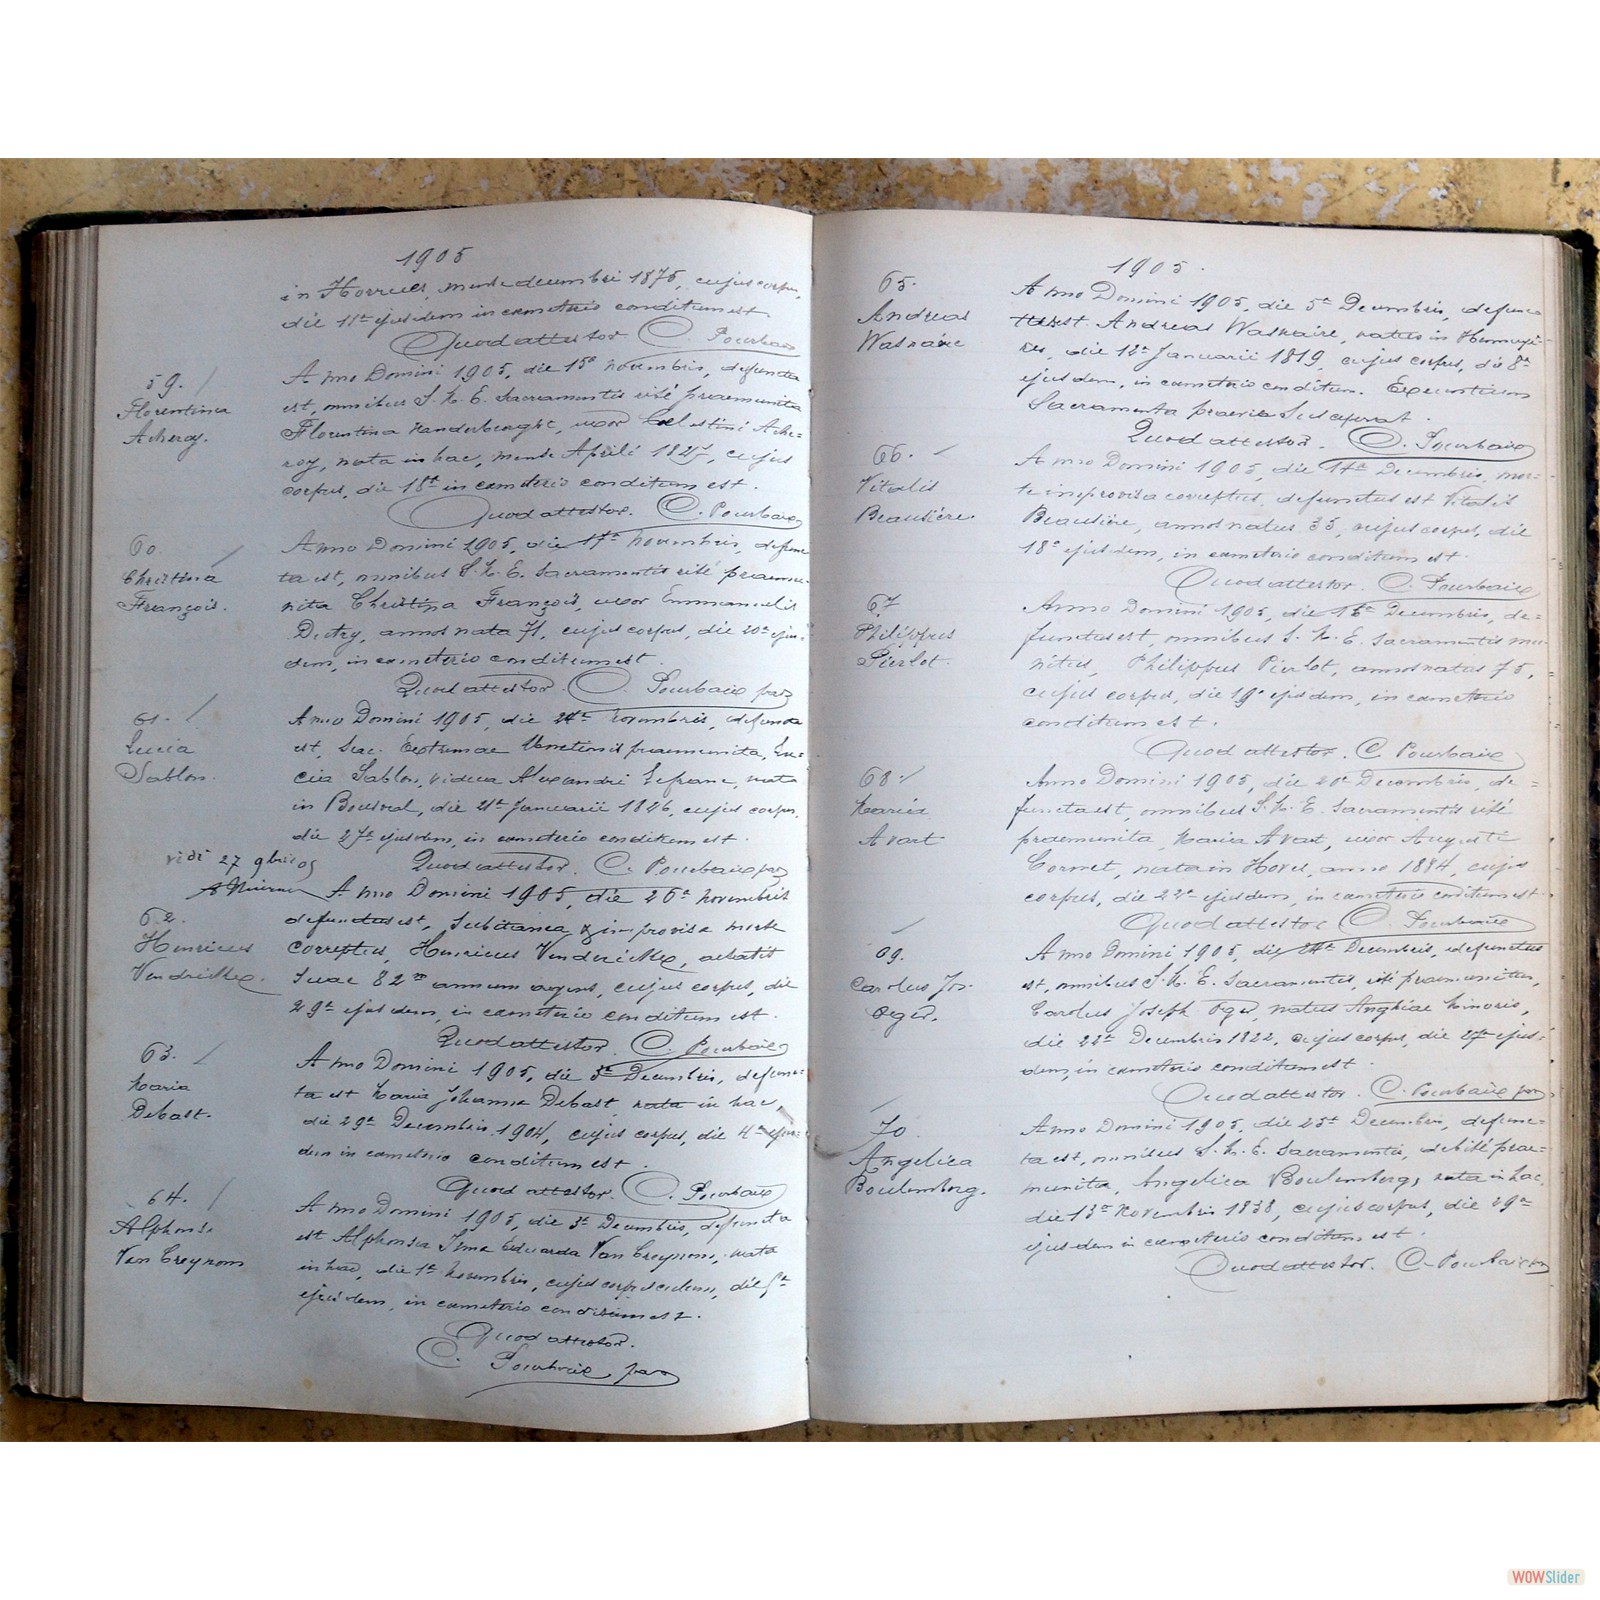 1905
in Horrues, mense decembri 1875, cujus corpus,
die 11a ejusdem in cœmeterio conditum est.
Quod attestor C. Pourbaix
59.
Florentina
Acheroy.
Anno Domini 1905, die 15a novembris, defuncta
est, omnibus S. M. E. Sacramentis ritè praemunita
Florentina Vanderbeught, uxor Celestini Ache=
roy, nata in hac, mense Aprili 1827, cujus
corpus, die 18a in cœmeterio conditum est.
Quod attestor. C. Pourbaix
60.
Christina
François.
Anno Domini 1905, die 17a novembris, defunc
ta est, omnibus S. M. E. Sacramentis ritè praemu=
nita Christina François, uxor Emmanuelis
Detry, annos nata 71, cujus corpus, die 20a ejus=
dem, in cœmeterio conditum est.
Quod attestor C. Pourbaix par
61.
Lucia
Sablon.
Anno Domini 1905, die 24a novembris, defuncta
est, Sac. Extremae Unctionis praemunita, Lu=
cia Sablon, vidua Alexandri Lefranc, nata
in Bousval, die 21a Januarii 1826, cujus corpus,
die 27a ejusdem, in cœmeterio conditum est.
Quod attestor. C. Pourbaix par
vidi 27 9bris 05
62.
Henricus
Vendrickx.
Anno Domini 1905, die 26a novembris
defunctus est, subitanea & improvisa morte
correptus, Henricus Venderickx, aetatis
suae 82um annum agens, cujus corpus, die
29a ejusdem, in cœmeterio conditum est.
Quod attestor. C. Pourbaix
63.
Maria
Debast.
Anno Domini 1905, die 3a Decembris, defunc=
ta est Maria Johanna Debast, nata in hac,
die 29a Decembris 1904, cujus corpus, die 4a ejus=
dem in cœmeterio conditum est.
Quod attestor. C. Pourbaix
64.
Alphonsa
Van Creynom
Anno Domini 1905, die 3a Decembris, defuncta
est Alphonsa Irma Eduarda Van Creynom, nata
in hac, die 1a Novembris, cujus corpusculum, die 5a
ejusdem, in cœmeterio conditum est.
Quod attestor.
C. Pourbaix par
1905.
65.
Andreas
Wasnaire
Anno Domini 1905, die 5a Decembris, defunc
tus est Andreas Wasnaire, natus in Hennuyè=
res, die 12a Januarii 1819, cujus corpus, die 8a
ejusdem, in cœmeterio conditum. Exeuntium
Sacramenta praevie susceperat.
Quod attestor. C. Pourbaix
66.
Vitalis
Beautière.
Anno Domini 1905, die 14a Decembris, mor=
te improvisa correptus, defunctus est Vitalis
Beautière, annos natus 35, cujus corpus, die
18a ejusdem, in cœmeterio conditum est.
Quod attestor. C. Pourbaix
67
Philippus
Pierlot.
Anno Domini 1905, die 16a Decembris, de=
functus est, omnibus S. M. E. Sacramentis mu=
nitus, Philippus Pierlot, annos natus 75,
cujus corpus, die 19a ejusdem, in cœmeterio
conditum est.
Quod attestor. C. Pourbaix
68.
Maria
Avart
Anno Domini 1905, die 20a Decembris, de=
functa est, omnibus S. M. E. Sacramentis ritè
praemunita, Maria Avart, uxor Augusti
Cornet, nata in Hoves, anno 1884, cujus
corpus, die 22a ejusdem, in cœmeterio conditum est
Quod attestor C. Pourbaix
69.
Carolus Jos.
Oger.
Anno Domini 1905, die 24a Decembris, defunctus
est, omnibus S. M. E. Sacramentis, ritè praemunitus,
Carolus Joseph Oger, natus Anghiae Minoris,
die 22a Decembris 1822, cujus corpus, die 27a ejus=
dem, in cœmeterio conditum est.
Quod attestor. C. Pourbaix par
70
Angelica
Boulemberg.
Anno Domini 1905, die 25a Decembris, defunc=
ta est, omnibus S. M. E. Sacramentis, debitè prae=
munita, Angelica Boulemberg, nata in hac,
die 13a Novembris 1838, cujus corpus, die 29a
ejusdem in cœmeterio conditum est.
Quod attestor. C. Pourbaix par
WOWSlider